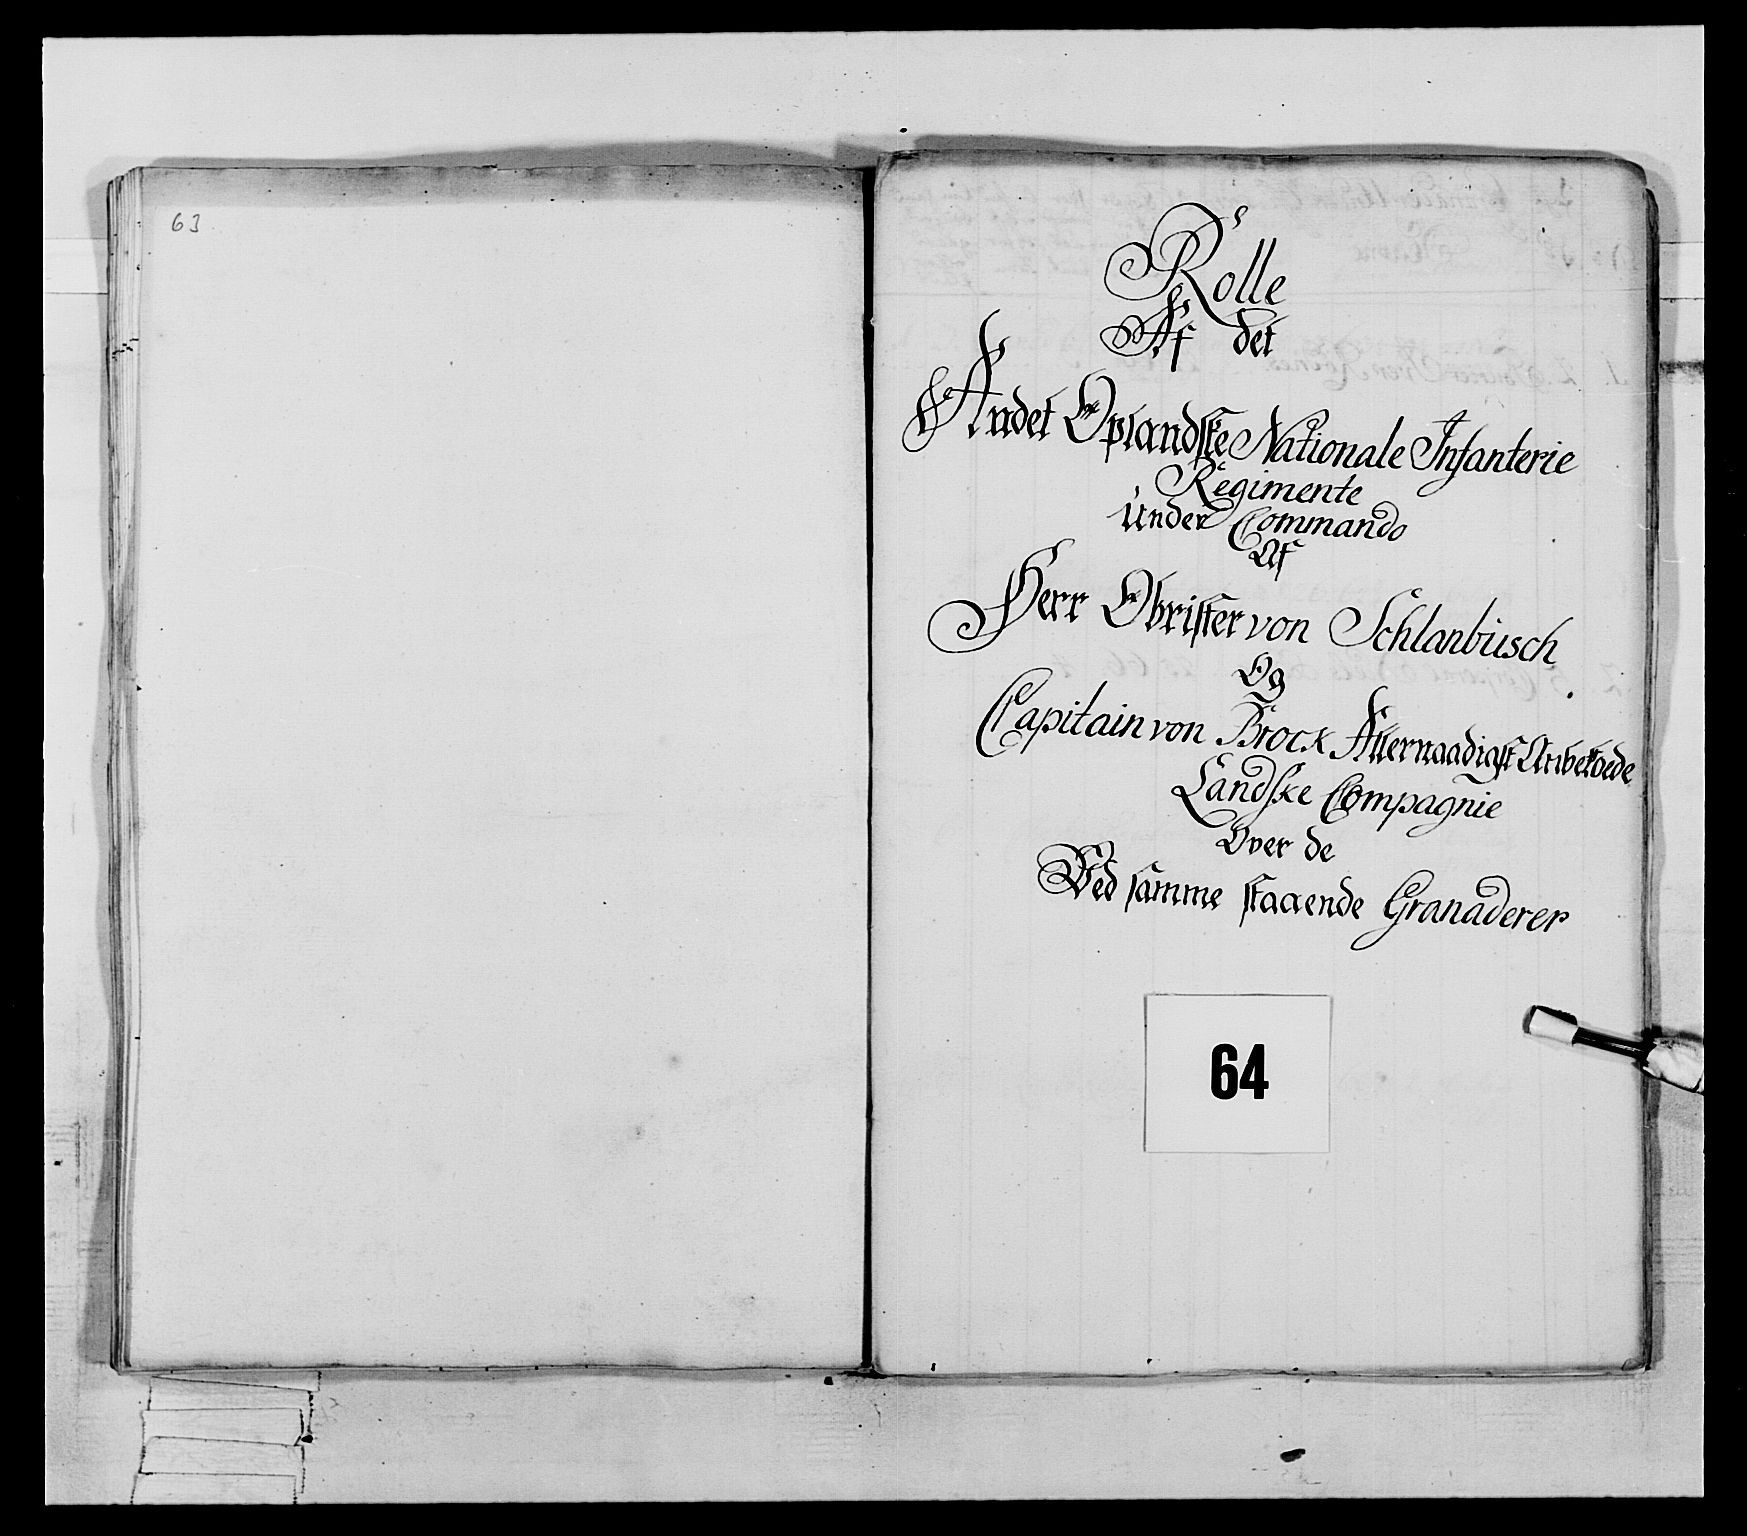 63
Rolle
Af det
Andet Oplandske Nationale Infanterie
Regimente
Under Commando
Af
Herr Obrister von Schlanbusch
Og
Capitain von Brock Allernaadigst Anbetroede
Landske Compagnie
Over de
Ved samme staaende Granaderer
64